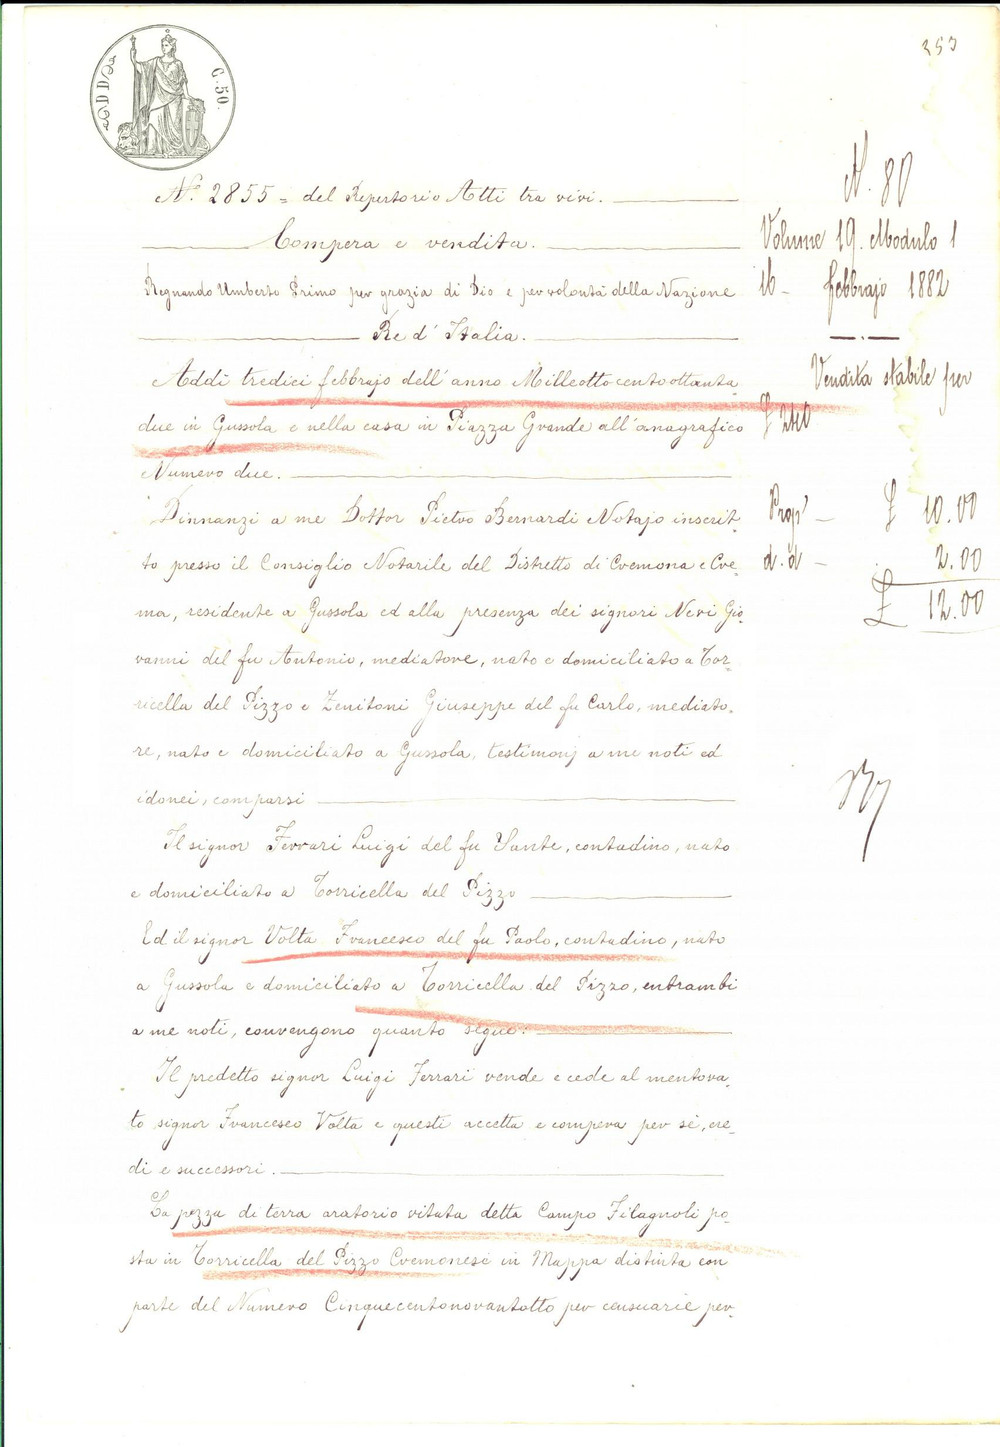 353
DD
C. 50.
N.º 2855 = del Repertorio Atti tra vivi.
Compera e vendita.
Regnando Umberto Primo per grazia di Dio e per volontà della Nazione
Re d'Italia.
Addì tredici febbrajo dell'anno Milleottocentoottanta
due in Gussola e nella casa in Piazza Grande all'anagrafico
Numero due.
Dinnanzi a me Dottor Pietro Bernardi Notajo inscrit-
to presso il Consiglio Notarile del Distretto di Cremona e Cre-
ma, residente a Gussola ed alla presenza dei signori Nevi Gio-
vanni del fu Antonio, mediatore, nato e domiciliato a Tor-
ricella del Pizzo e Zenitoni Giuseppe del fu Carlo, mediato-
re, nato e domiciliato a Gussola, testimonj a me noti ed
idonei, comparsi
Il signor Ferrari Luigi del fu Sante, contadino, nato
e domiciliato a Torricella del Pizzo
Ed il signor Volta Francesco del fu Paolo, contadino, nato
a Gussola e domiciliato a Torricella del Pizzo, entrambi
a me noti, convengono quanto segue:
Il predetto signor Luigi Ferrari vende e cede al mentova-
to signor Francesco Volta e questi accetta e compera per sè, ere-
di e successori.
La pezza di terra aratorio vitata detta Campo Filagnoli po-
sta in Torricella del Pizzo Cremonese in Mappa distinta con
parte del Numero Cinquecentonovantotto per censuarie per-
N. 80
Volume 19. Modulo 1
16 - febbrajo 1882
Vendita stabile per
£
Prop' - £ 10.00
d. d - 2.00
£ 12.00